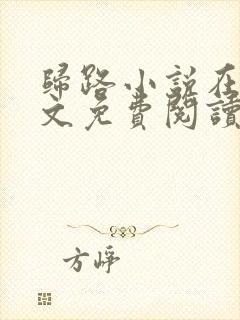 歸路小說在
文免費閱讀
方崢